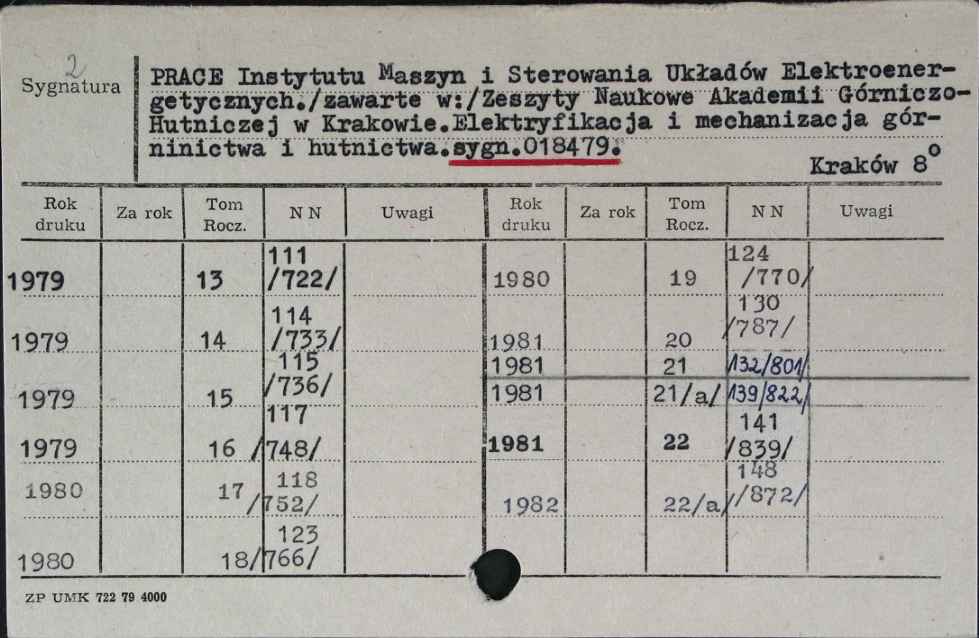 2
Sygnatura
PRACE Instytutu Maszyn i Sterowania Układów Elektroener-
getycznych./zawarte w:/Zeszyty Naukowe Akademii Górniczo-
Hutniczej w Krakowie.Elektryfikacja i mechanizacja gór-
ninictwa i hutnictwa.sygn.018479.
Kraków 8°
Rok druku Za rok Tom Rocz. NN Uwagi Rok druku Za rok Tom Rocz. NN Uwagi
1979 13 111 /722/ 1980 19 124 /770/
1979 14 114 /733/ 1981 20 130 /787/
1981 21 132/801/
1979 15 115 /736/ 1981 21/a/ 139/822/
1979 16 117 /748/ 1981 22 141 /839/
1980 17 118 /752/ 1982 22/a/ 148 /872/
1980 18 123 /766/
ZP UMK 722 79 4000